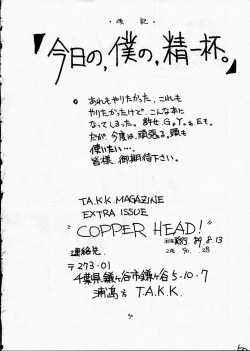 ・後記・
『今日の,僕の,精一杯。』
あれもやりたかった,これも
やりたかったけど,こんな本に
なってしまった。許せ G。Y。も E も。
だが,今度は,頑張る,頭も
使いたい…。
皆様,御期待下さい。
T.A.K.K. MAGAZINE
EXTRA ISSUE
"COPPER HEAD!"
発行 '89.8.13
連絡先.
〒273-01
千葉県鎌ヶ谷市鎌ヶ谷5-10-7
T.A.K.K.